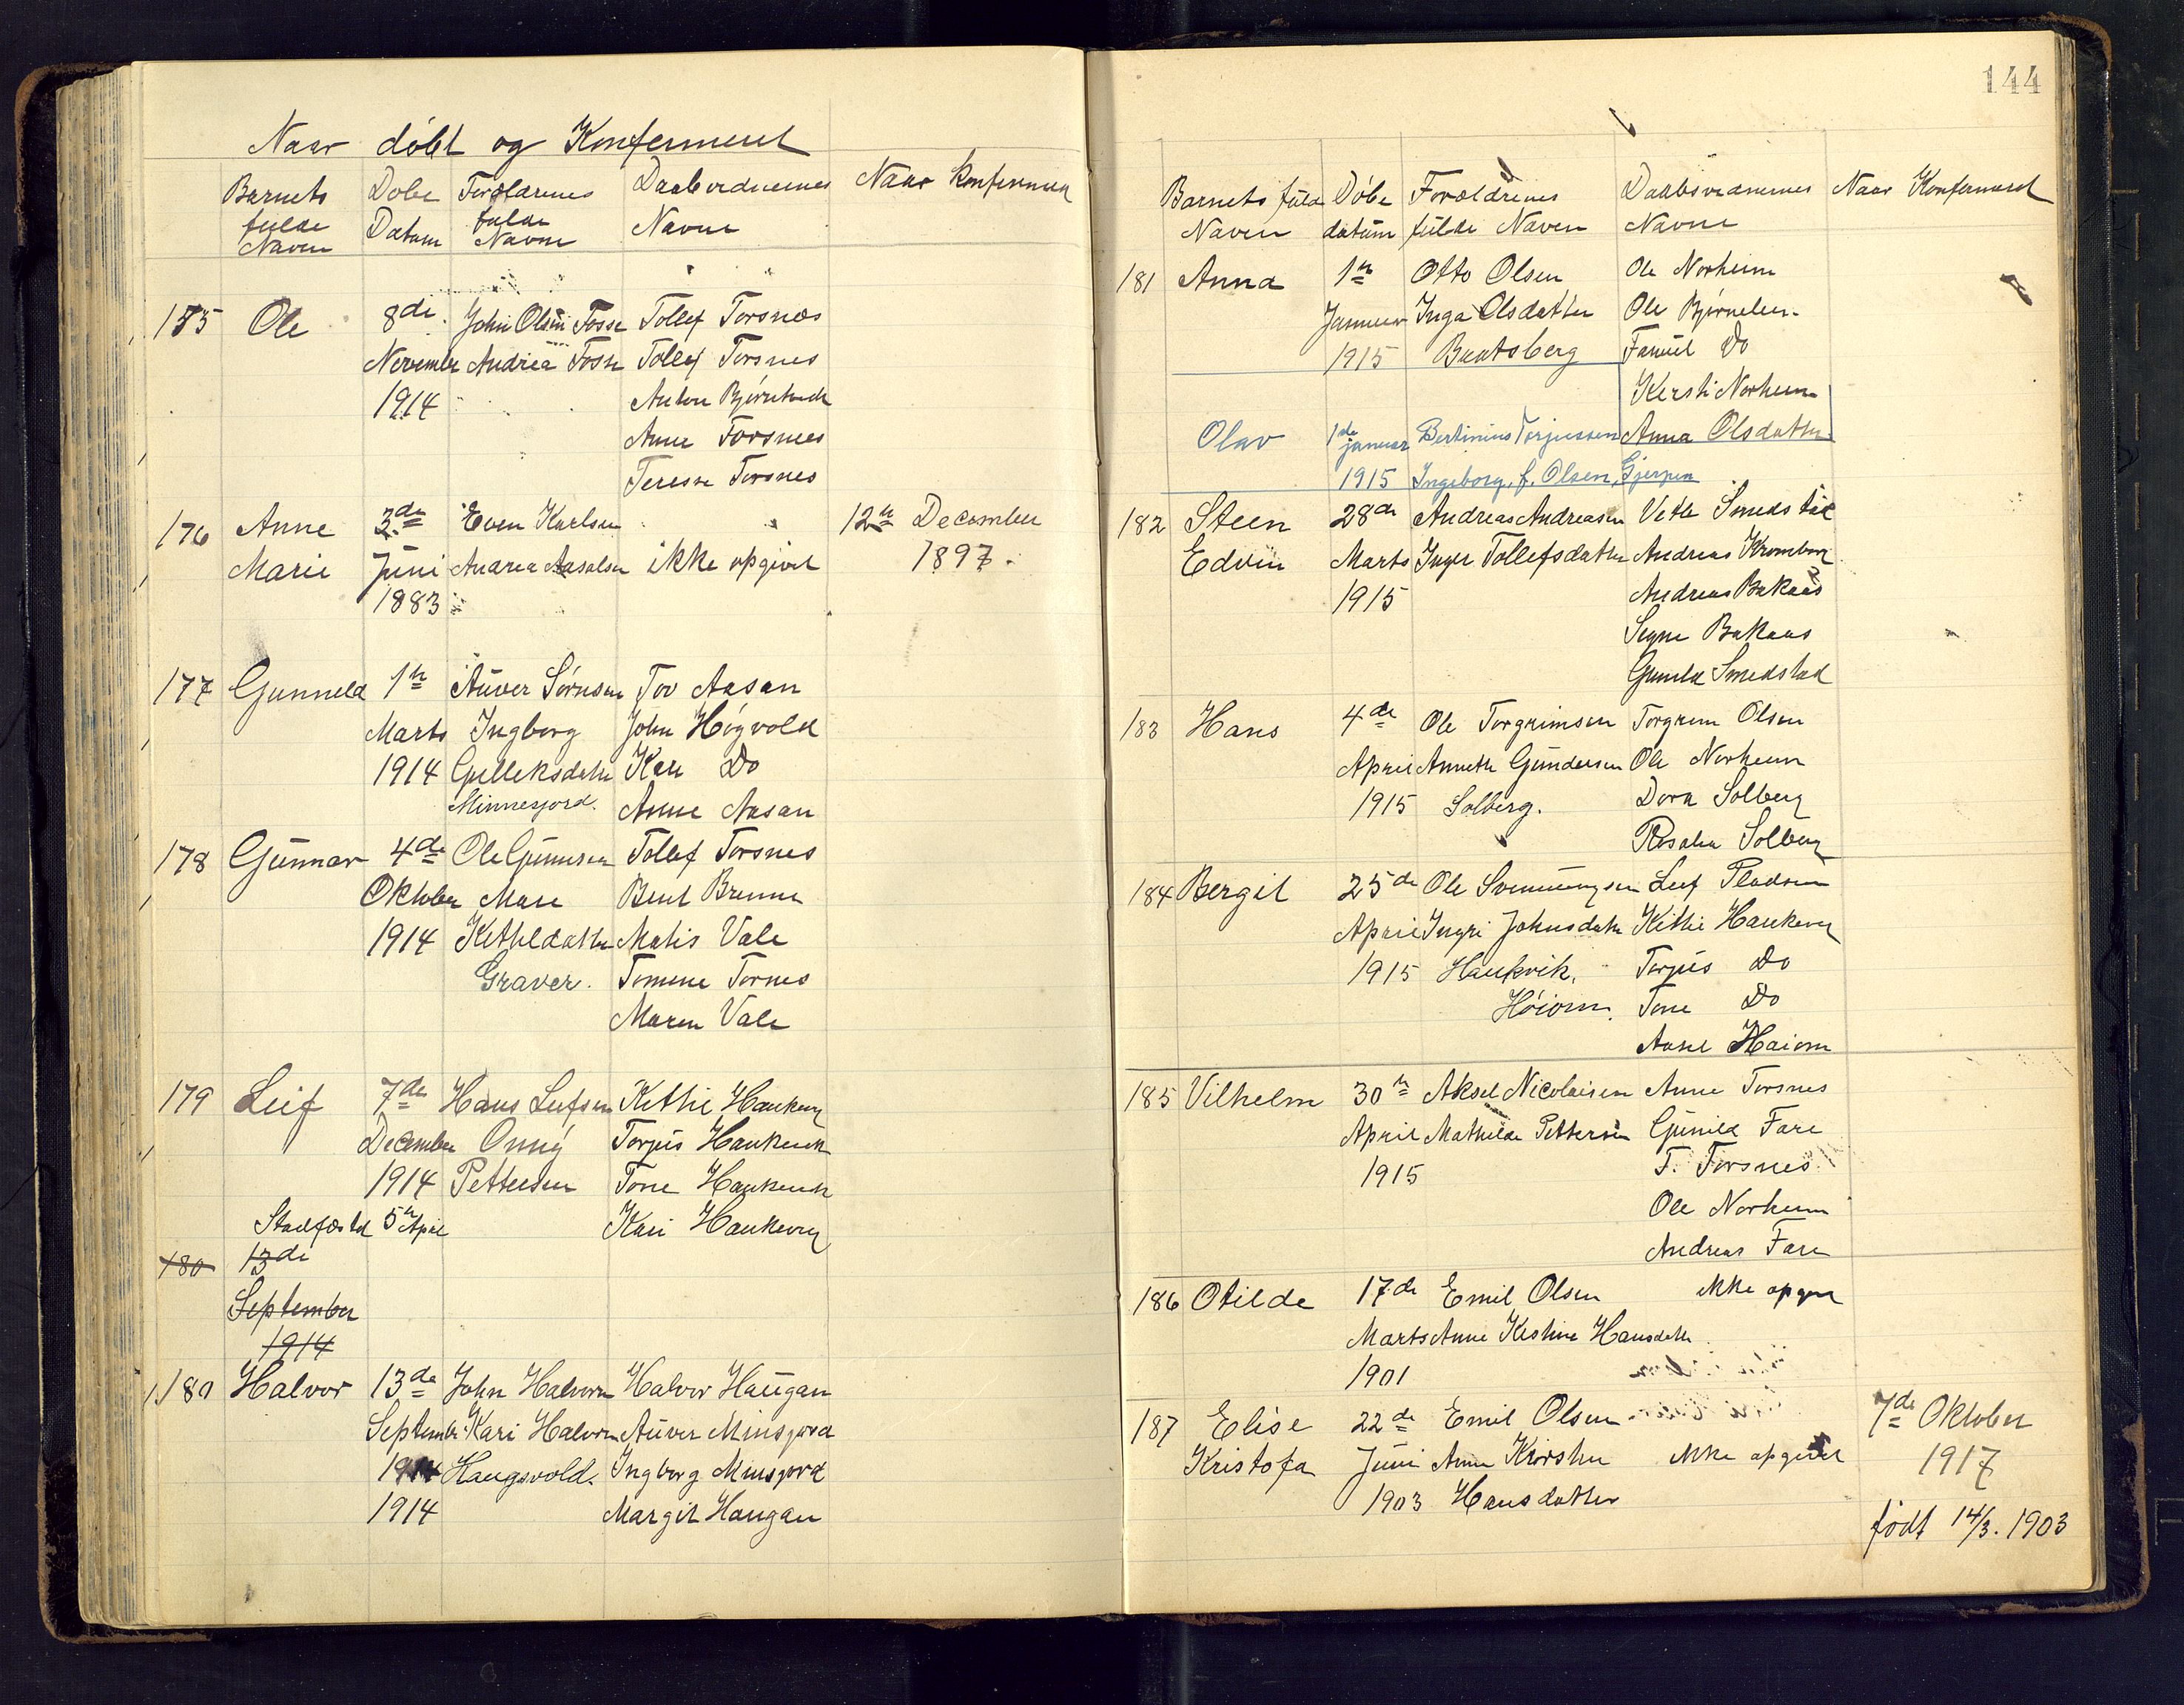 Naar döbt og Konfermert
Barnets fulde Navn
Döbe Datum
Forældrenes fulde Navne
Daabsvidnernes Navne
Naar Konfermert
155 Ole 8de John Olsen Fosse Tollef Torsnes
November Andrea Fosse Tollef Torsnes
1914 Anton
Anne Torsnes
Terese Torsnes
176 Anne 3de Even Karlsen 12te December
Marie Juni Andrea ikke opgivet 1897.
1883
177 Gunneld 1te Auver Sörnsen Tov Aasan
Marts Ingborg John Högvold
1914 Gulleksdatter Kari Do
Minnesjord. Anne Aasan
178 Gunnar 4de Ole Gunnersen Tollef Torsnes
Oktober Mare Bent Brenne
1914 Kitheldatter Matis Vale
Graver. Tomine Tornes
Maren Vale
179 Leif 7de Hans Leifsen Kithil Haukevig
December Onny Torjus Haukevik
1914 Pettersen Tone Haukevik
Stadfæstd 5te April Kari Haukevig
180 13de
September
1914
180 Halvor 13de John Halvorsen Halvor Haugan
September Kari Halvorsen Auver Minsjord
1914 Haugsvold. Ingborg Minsjord
1914 Margit Haugan
144
Barnets fulde Naven
Döbe datum
Forældrenes fulde Naven
Daabsvidnernes Navne
Naar Konfermerd
181 Anna 1te Otto Olsen Ole Norheim
Januar Inga Olsdatter Ole
1915 Baatsberg Do
Kersti Norheim
Olav 1de januar Bertinius Torjussen Anna Olsdatter
1915 Ingeborg, f. Olsen, Gjerpen
182 Steen 28de Andreas Andreasen Vetle Smedstad
Edvin Marts Inger Tollefsdatter Andreas Kromborg
1915 Andreas Bakaas
Signe Bakaas
Gunild Smedstad
183 Hans 4de Ole Torgrimsen Torgrim Olsen
April Anneth Gundersen Ole Norheim
1915 Solberg. Dora Solberg
Rosalia Solberg
184 Bergit 25de Ole Svenningsen Leif Pladsen
April Ingri Johnsdatter Kittil Haukevig
1915 Haukvik. Torjus Do
Höiom. Tone Do
Aasel Haiom
185 Vilhelm 30te Aksel Nicolaisen Anne Torsnes
April Mathilde Pettersen Gunild Fare
1915 T. Torsnes
Ole Norheim
Andreas Fare
186 Otilde 17de Emil Olsen ikke opgivet
Marts Anne Kistine Hansdatter
1901
187 Elise 22de Emil Olsen 7de Oktober
Kristofa Juni Anne Kirstine ikke opgivet 1917
1903 Hansdatter
födt 14/3. 1903